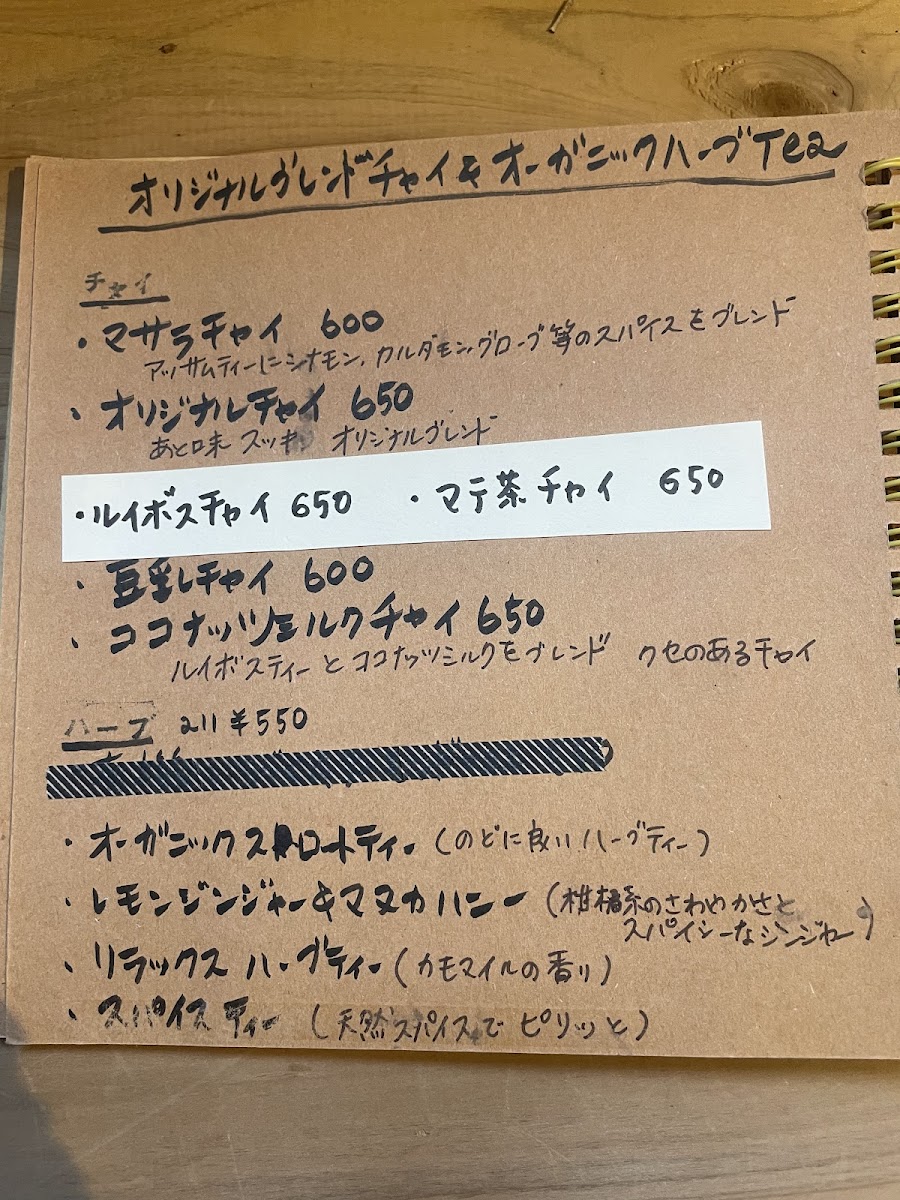 オリジナルブレンドチャイ&オーガニックハーブTea
チャイ
・マサラチャイ 600
アッサムティーにシナモン、カルダモン、グローブ等のスパイスをブレンド
・オリジナルチャイ 650
あと口味 スッキリ オリジナルブレンド
・ルイボスチャイ 650 ・マテ茶チャイ 650
・豆乳チャイ 600
・ココナッツミルクチャイ 650
ルイボスティーとココナッツミルクをブレンド クセのあるチャイ
ハーブ all ¥550
・オーガニックスロートティー (のどに良いハーブティー)
・レモンジンジャー&マヌカハニー (柑橘系のさわやかさと
スパイシーなジンジャー)
・リラックスハーブティー (カモマイルの香り)
・スパイスティー (天然スパイスでピリッと)